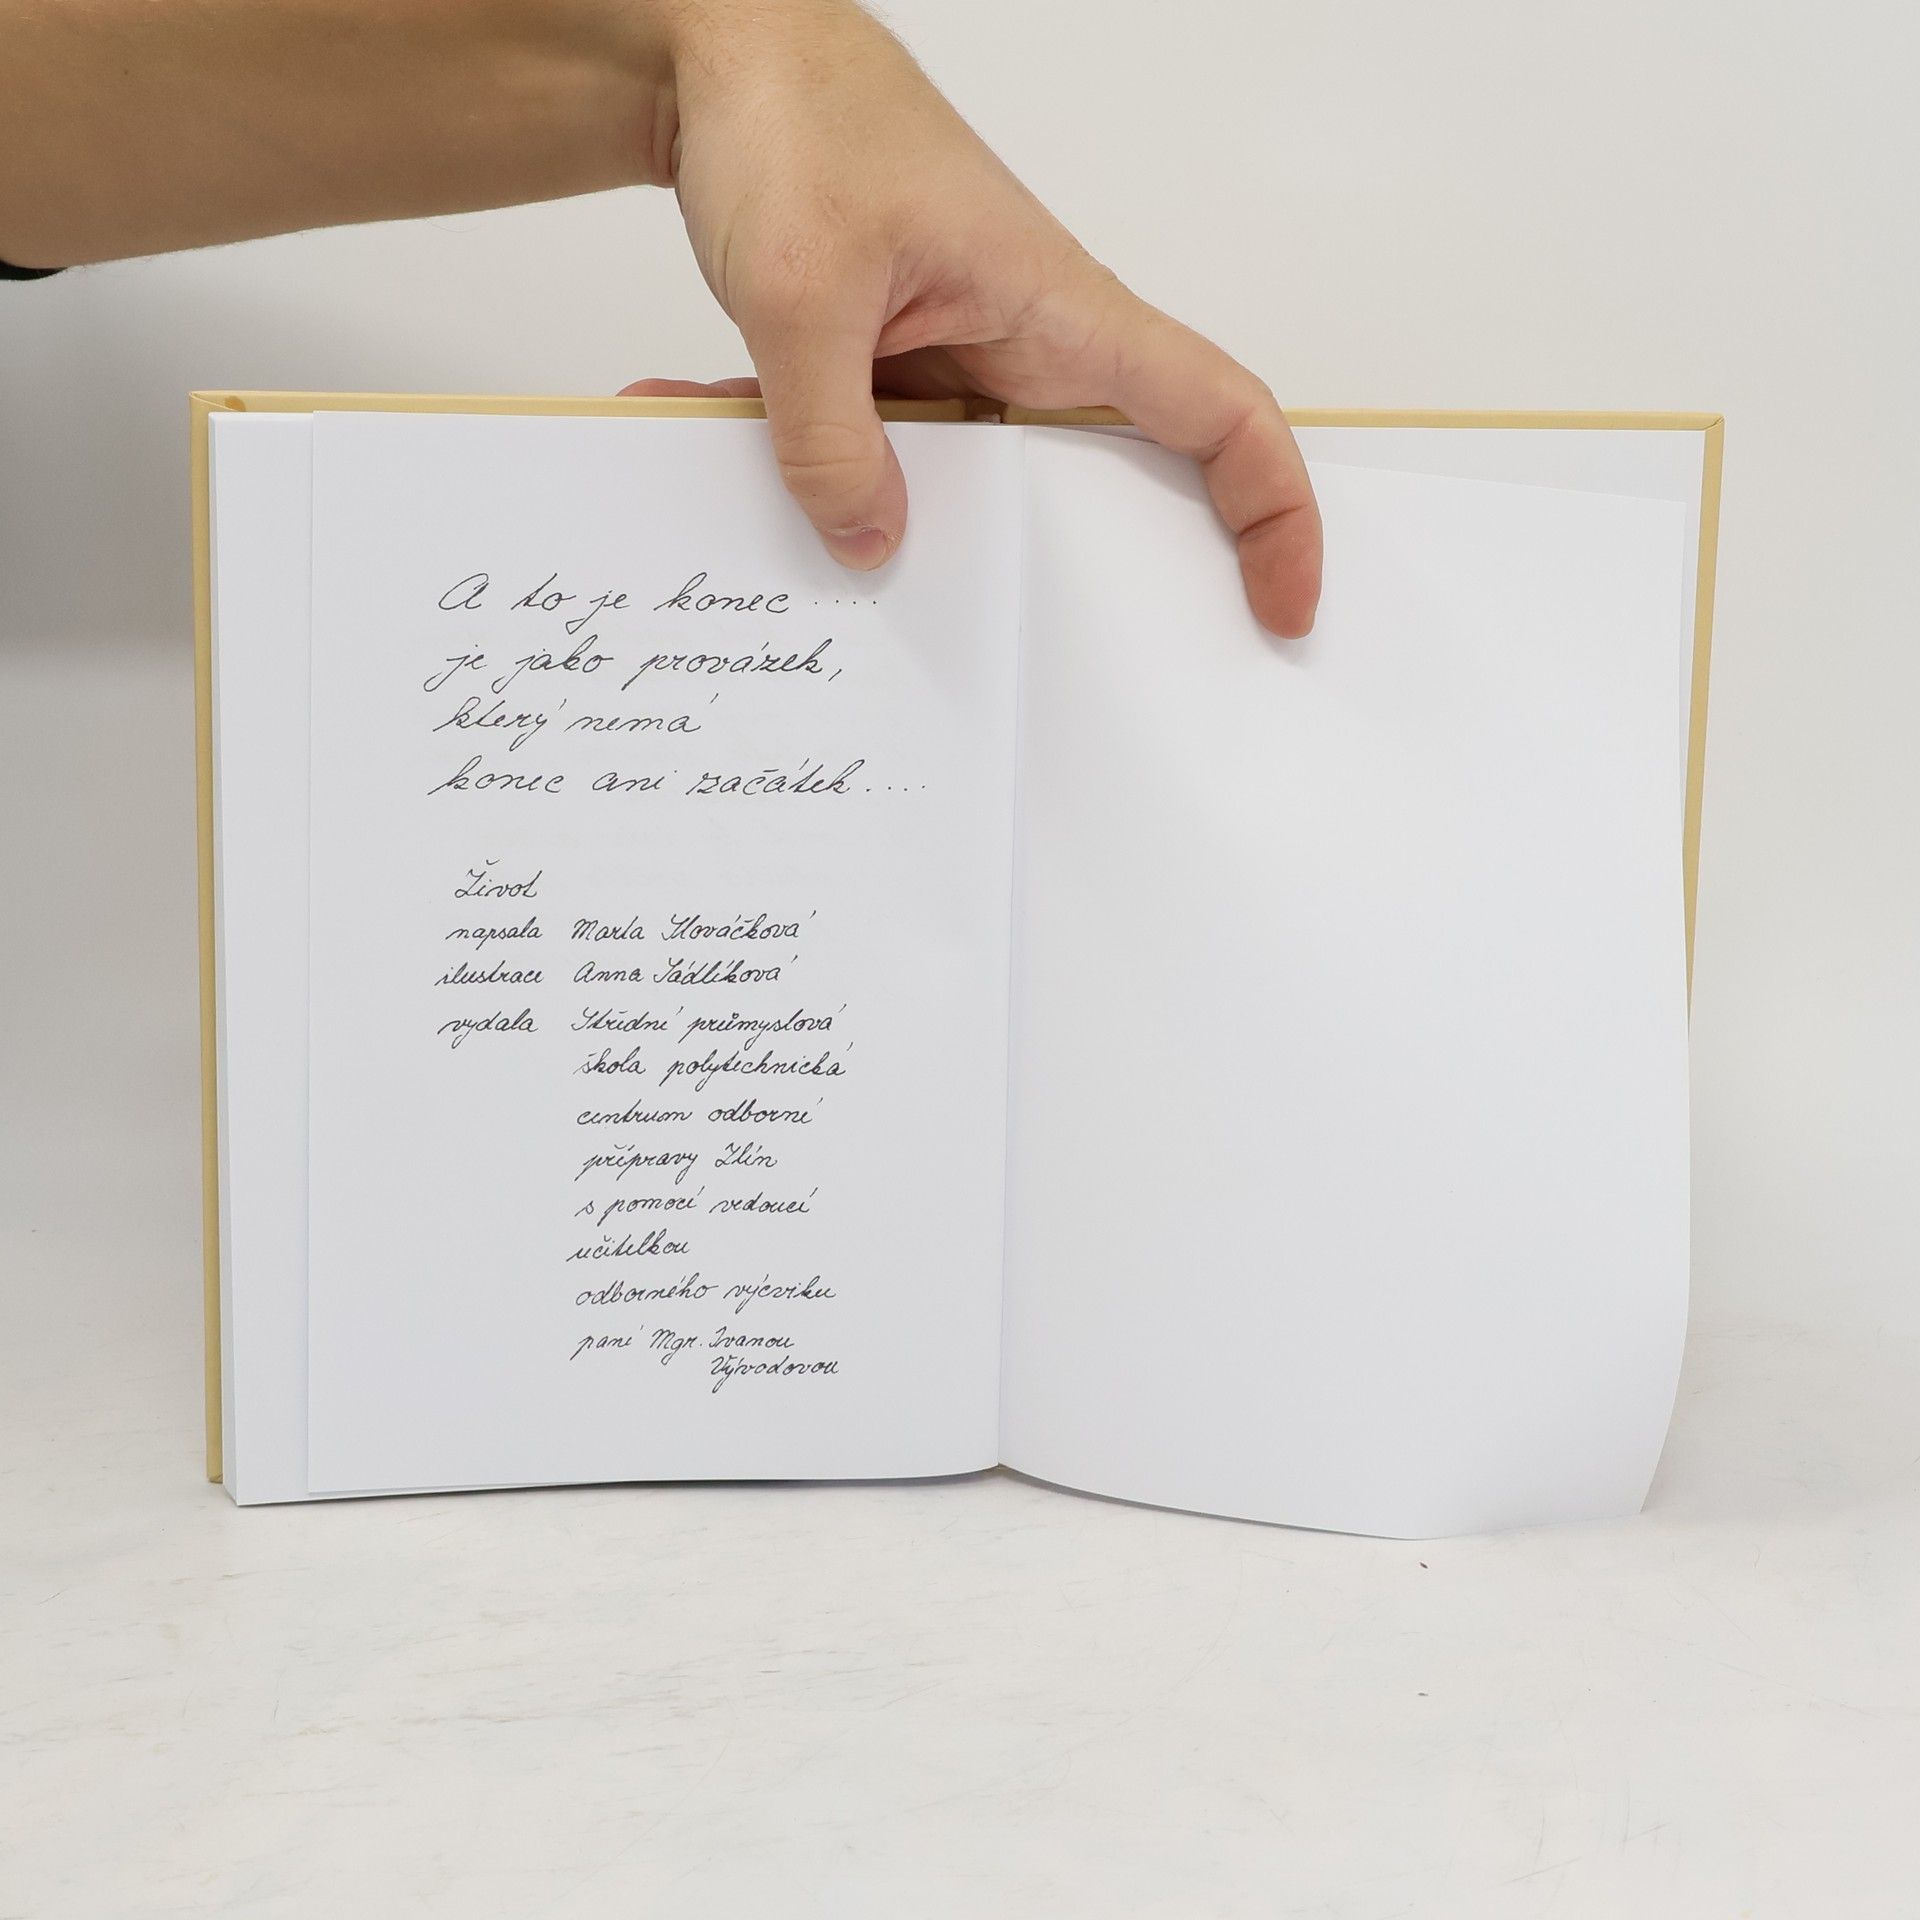 A to je konec ....
je jako provázek,
který nemá
konec ani začátek ....
Život
napsala Marta Slováčková
ilustrace Anna Sádlíková
vydala Střední průmyslová
škola polytechnická
centrum odborné
přípravy Zlín
s pomocí vedoucí
učitelkou
odborného výcviku
paní Mgr. Ivanou
Vývodovou